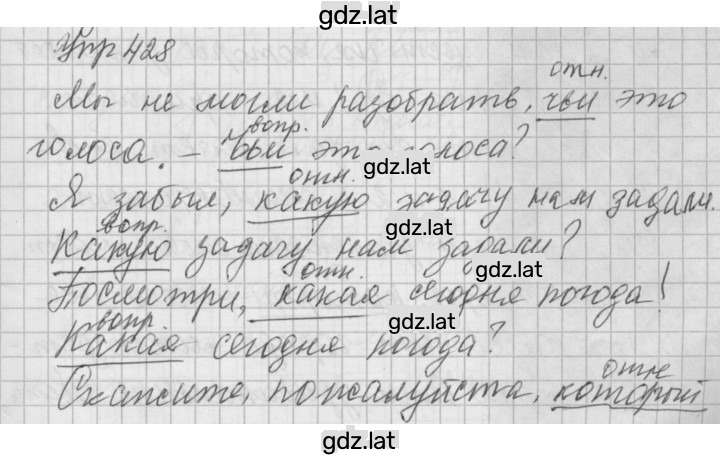 gdz.lat
Упр 428
отн.
Мы не могли разобрать, чьи это
вопр.
голоса. – Чьи это голоса?
gdz.lat
отн.
Я забыл, какую задачу нам задали.
gdz.lat
вопр.
Какую задачу нам задали?
gdz.lat
отн.
Посмотри, какая сегодня погода!
gdz.lat
вопр.
Какая сегодня погода?
отн
Скажите, пожалуйста, который
gdz.lat